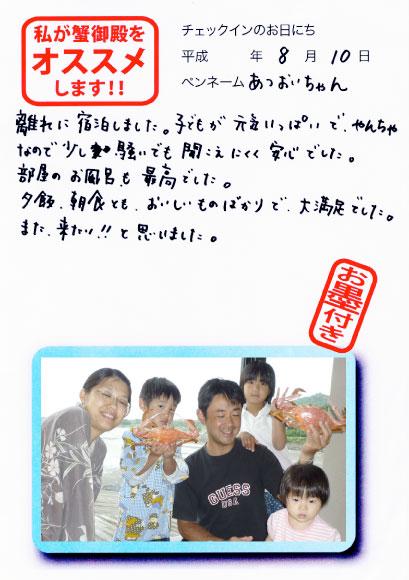 私が蟹御殿を
オススメ
します!!
チェックインのお日にち
平成 年 8 月 10 日
ペンネーム あつおいちゃん
離れに宿泊しました。子どもが元気いっぱいで、やんちゃ
なので少し騒いでも聞こえにくく安心でした。
部屋のお風呂も最高でした。
夕飯、朝食とも、おいしいものばかりで、大満足でした。
また、来たい!!と思いました。
お墨付き
GUESS
USA